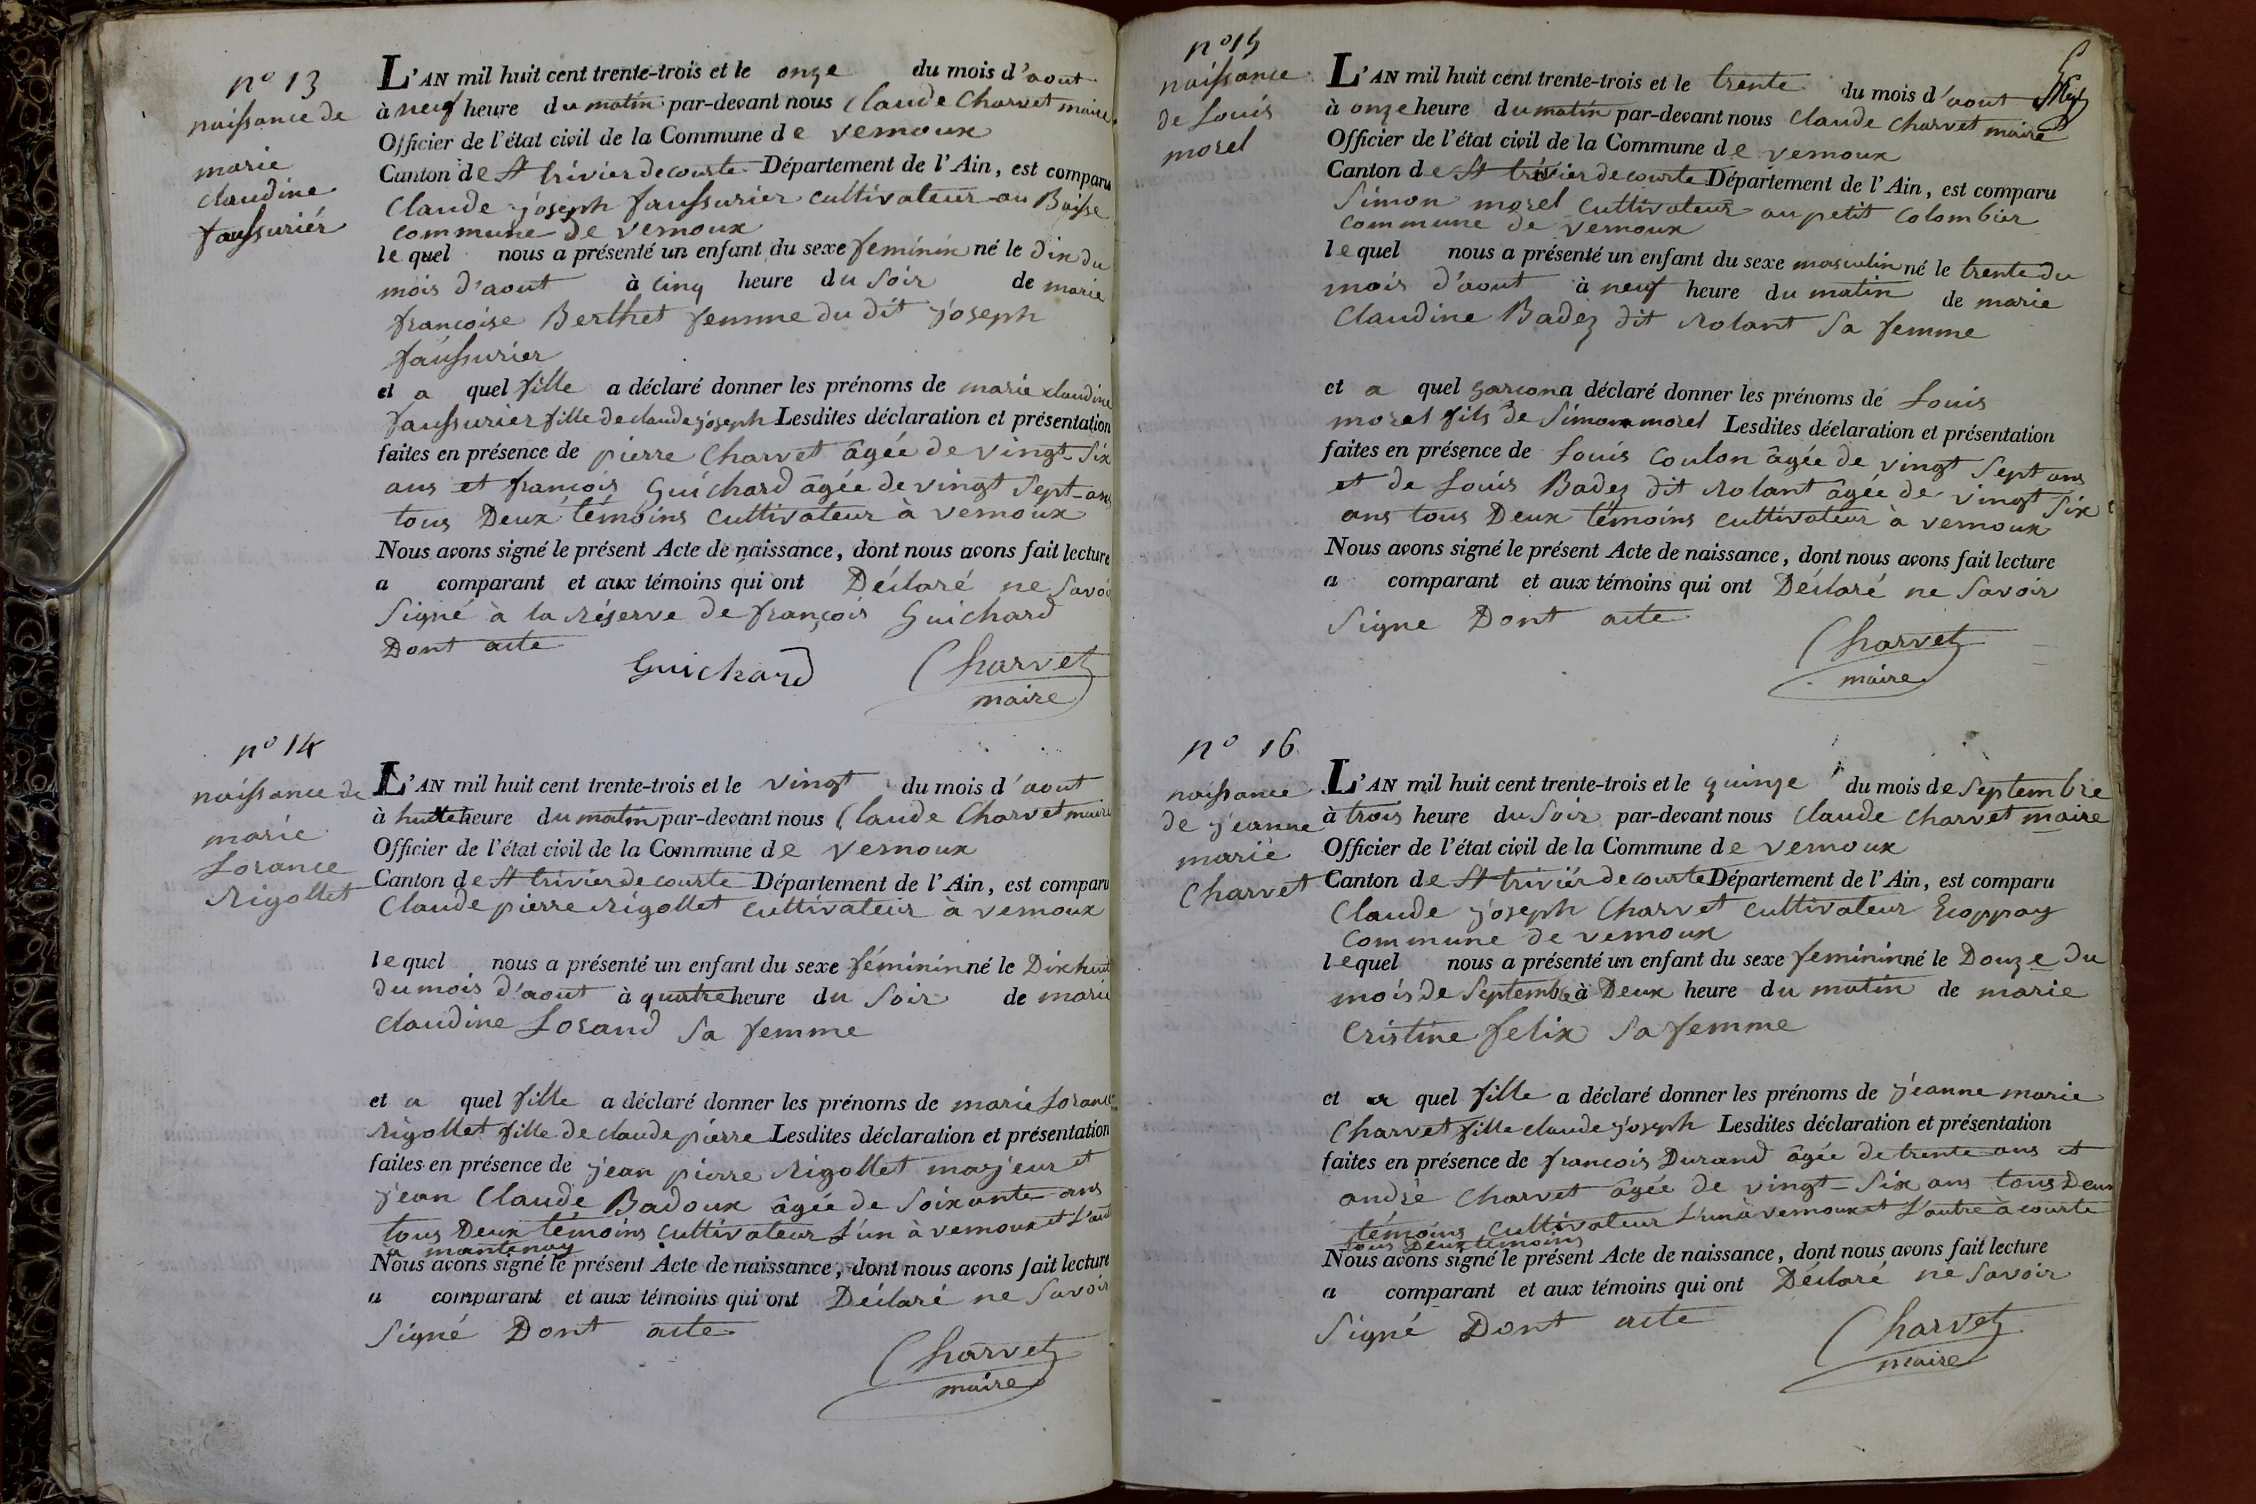 n° 13
naissance de
marie
claudine
faussuriér
L'AN mil huit cent trente-trois et le onze du mois d'aout
à neuf heure du matin par-devant nous Claude Charvet maire
Officier de l'état civil de la Commune de vernoux
Canton de St trivier de courte Département de l'Ain, est comparu
Claude joseph faussurier cultivateur au Baisse
commune de vernoux
lequel nous a présenté un enfant du sexe feminin né le dix du
mois d'aout à cinq heure du soir de marie
francoise Berthet femme du dit joseph
faussurier
et a quel fille a déclaré donner les prénoms de marie claudine
faussurier fille de claude joseph Lesdites déclaration et présentation
faites en présence de pierre Charvet âgée de vingt-six
ans et francois Guichard âgée de vingt sept ans
tous Deux témoins cultivateur à vernoux
Nous avons signé le présent Acte de naissance, dont nous avons fait lecture
a comparant et aux témoins qui ont Déclaré ne savoi
signé à la réserve de françois Guichard
Dont acte
Guichard Charvet
maire
n° 14
naissance de
marie
Lorance
Rigollet
L'AN mil huit cent trente-trois et le vingt du mois d'aout
à huit heure du matin par-devant nous Claude Charvet maire
Officier de l'état civil de la Commune de vernoux
Canton de St trivier de courte Département de l'Ain, est comparu
Claude pierre Rigollet cultivateur à vernoux
lequel nous a présenté un enfant du sexe féminin né le Dix huit
du mois d'aout à quatre heure du soir de marie
claudine Lorand sa femme
et a quel fille a déclaré donner les prénoms de marie Lorance
Rigollet fille de claude pierre Lesdites déclaration et présentation
faites en présence de jean pierre Rigollet majeur et
jean Claude Badoux âgée de soixante ans
tous Deux témoins cultivateur L'un à vernoux et L'aut
à mantenay
Nous avons signé le présent Acte de naissance, dont nous avons fait lecture
a comparant et aux témoins qui ont Déclaré ne savoir
signé Dont acte
Charvet
maire
n° 15
naissance
de Louis
morel
L'AN mil huit cent trente-trois et le trente du mois d'aout
à onze heure du matin par-devant nous Claude Charvet maire
Officier de l'état civil de la Commune de vernoux
Canton de St trivier de courte Département de l'Ain, est comparu
Simon morel cultivateur au petit colombier
commune de vernoux
lequel nous a présenté un enfant du sexe masculin né le trente du
mois d'aout à neuf heure du matin de marie
Claudine Badez dit Rolant sa femme
et a quel garcon a déclaré donner les prénoms de Louis
morel fils de Simon morel Lesdites déclaration et présentation
faites en présence de Louis Coulon âgée de vingt sept ans
et de Louis Badez dit Rolant âgée de vingt six
ans tous Deux témoins cultivateur à vernoux
Nous avons signé le présent Acte de naissance, dont nous avons fait lecture
a comparant et aux témoins qui ont Déclaré ne savoir
signe Dont acte
Charvet
maire
n° 16
naissance
de jeanne
marie
Charvet
L'AN mil huit cent trente-trois et le quinze du mois de septembre
à trois heure du soir par-devant nous Claude Charvet maire
Officier de l'état civil de la Commune de vernoux
Canton de St trivier de courte Département de l'Ain, est comparu
Claude joseph Charvet cultivateur Ecoppay
commune de vernoux
lequel nous a présenté un enfant du sexe feminin né le Douze du
mois de septembre à Deux heure du matin de marie
Cristine felix sa femme
et a quel fille a déclaré donner les prénoms de jeanne marie
Charvet fille claude joseph Lesdites déclaration et présentation
faites en présence de francois Durand âgée de trente ans et
andré Charvet âgée de vingt-six ans tous Deux
témoins cultivateur L'un à vernoux et L'autre à courte
tous Deux témoins
Nous avons signé le présent Acte de naissance, dont nous avons fait lecture
a comparant et aux témoins qui ont Déclaré ne savoir
signé Dont acte
Charvet
maire